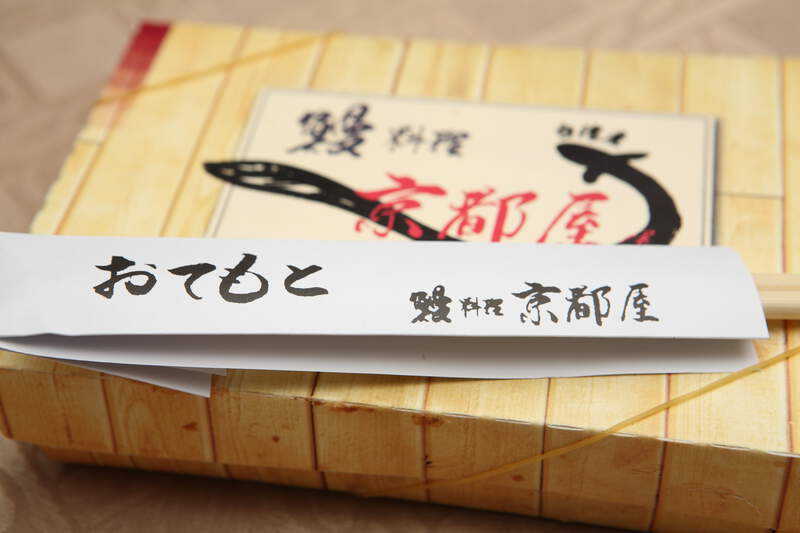 鰻料理
京都屋
おてもと
鰻料理 京都屋